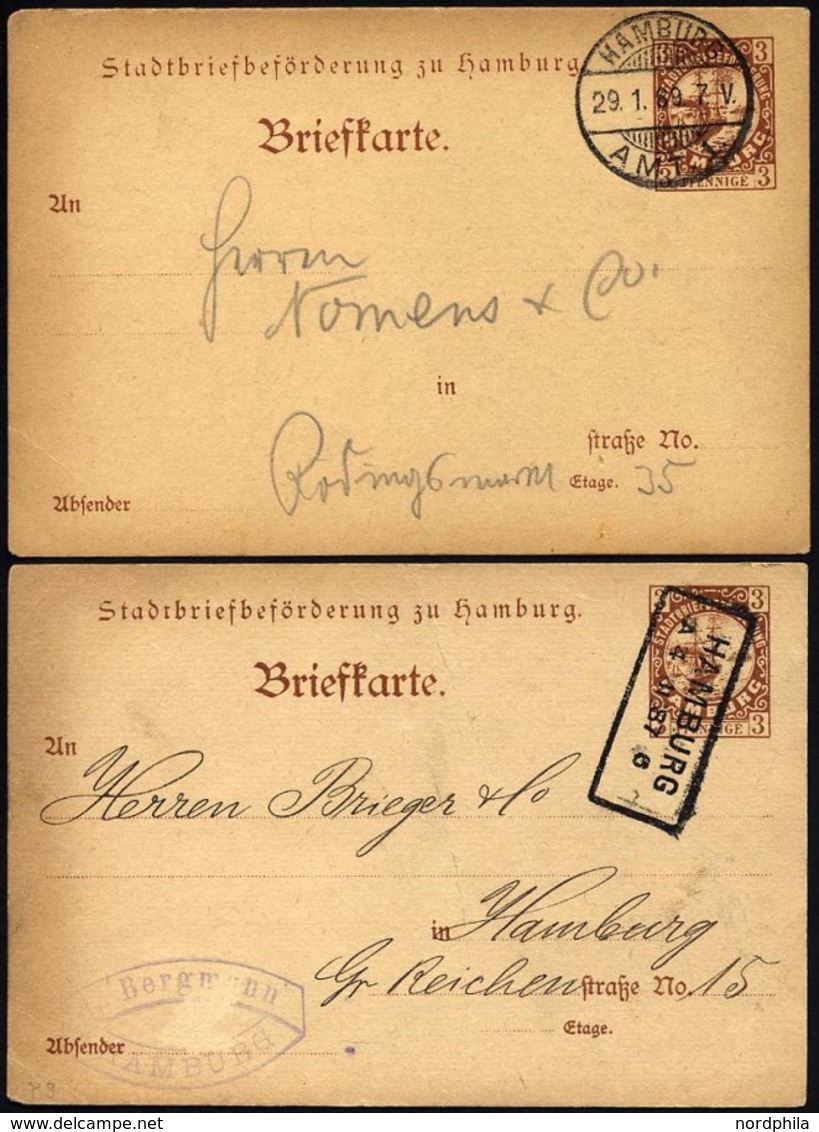 Stadtbriefbeförderung zu Hamburg.
Briefkarte.
3 3
STADTBRIEFBEFÖRDERUNG
HAMBURG
3 PFENNIGE 3
HAMBURG
29. 1. 89. 7. V.
AMT. 1.
An
Herrn
Nomens & Co.
in
straße No.
Rödingsmarkt
Etage. 35
Absender
Stadtbriefbeförderung zu Hamburg.
Briefkarte.
3
STADTBRIEFBEFÖRDERUNG
HAMBURG
PFENNIGE 3
HAMBURG
A 4 9 87 6
An
Herren Brieger & Co
in Hamburg
Gr Reichenstraße No. 15
Etage.
Bergmann
HAMBURG
Absender
nordphila
www.delcampe.net